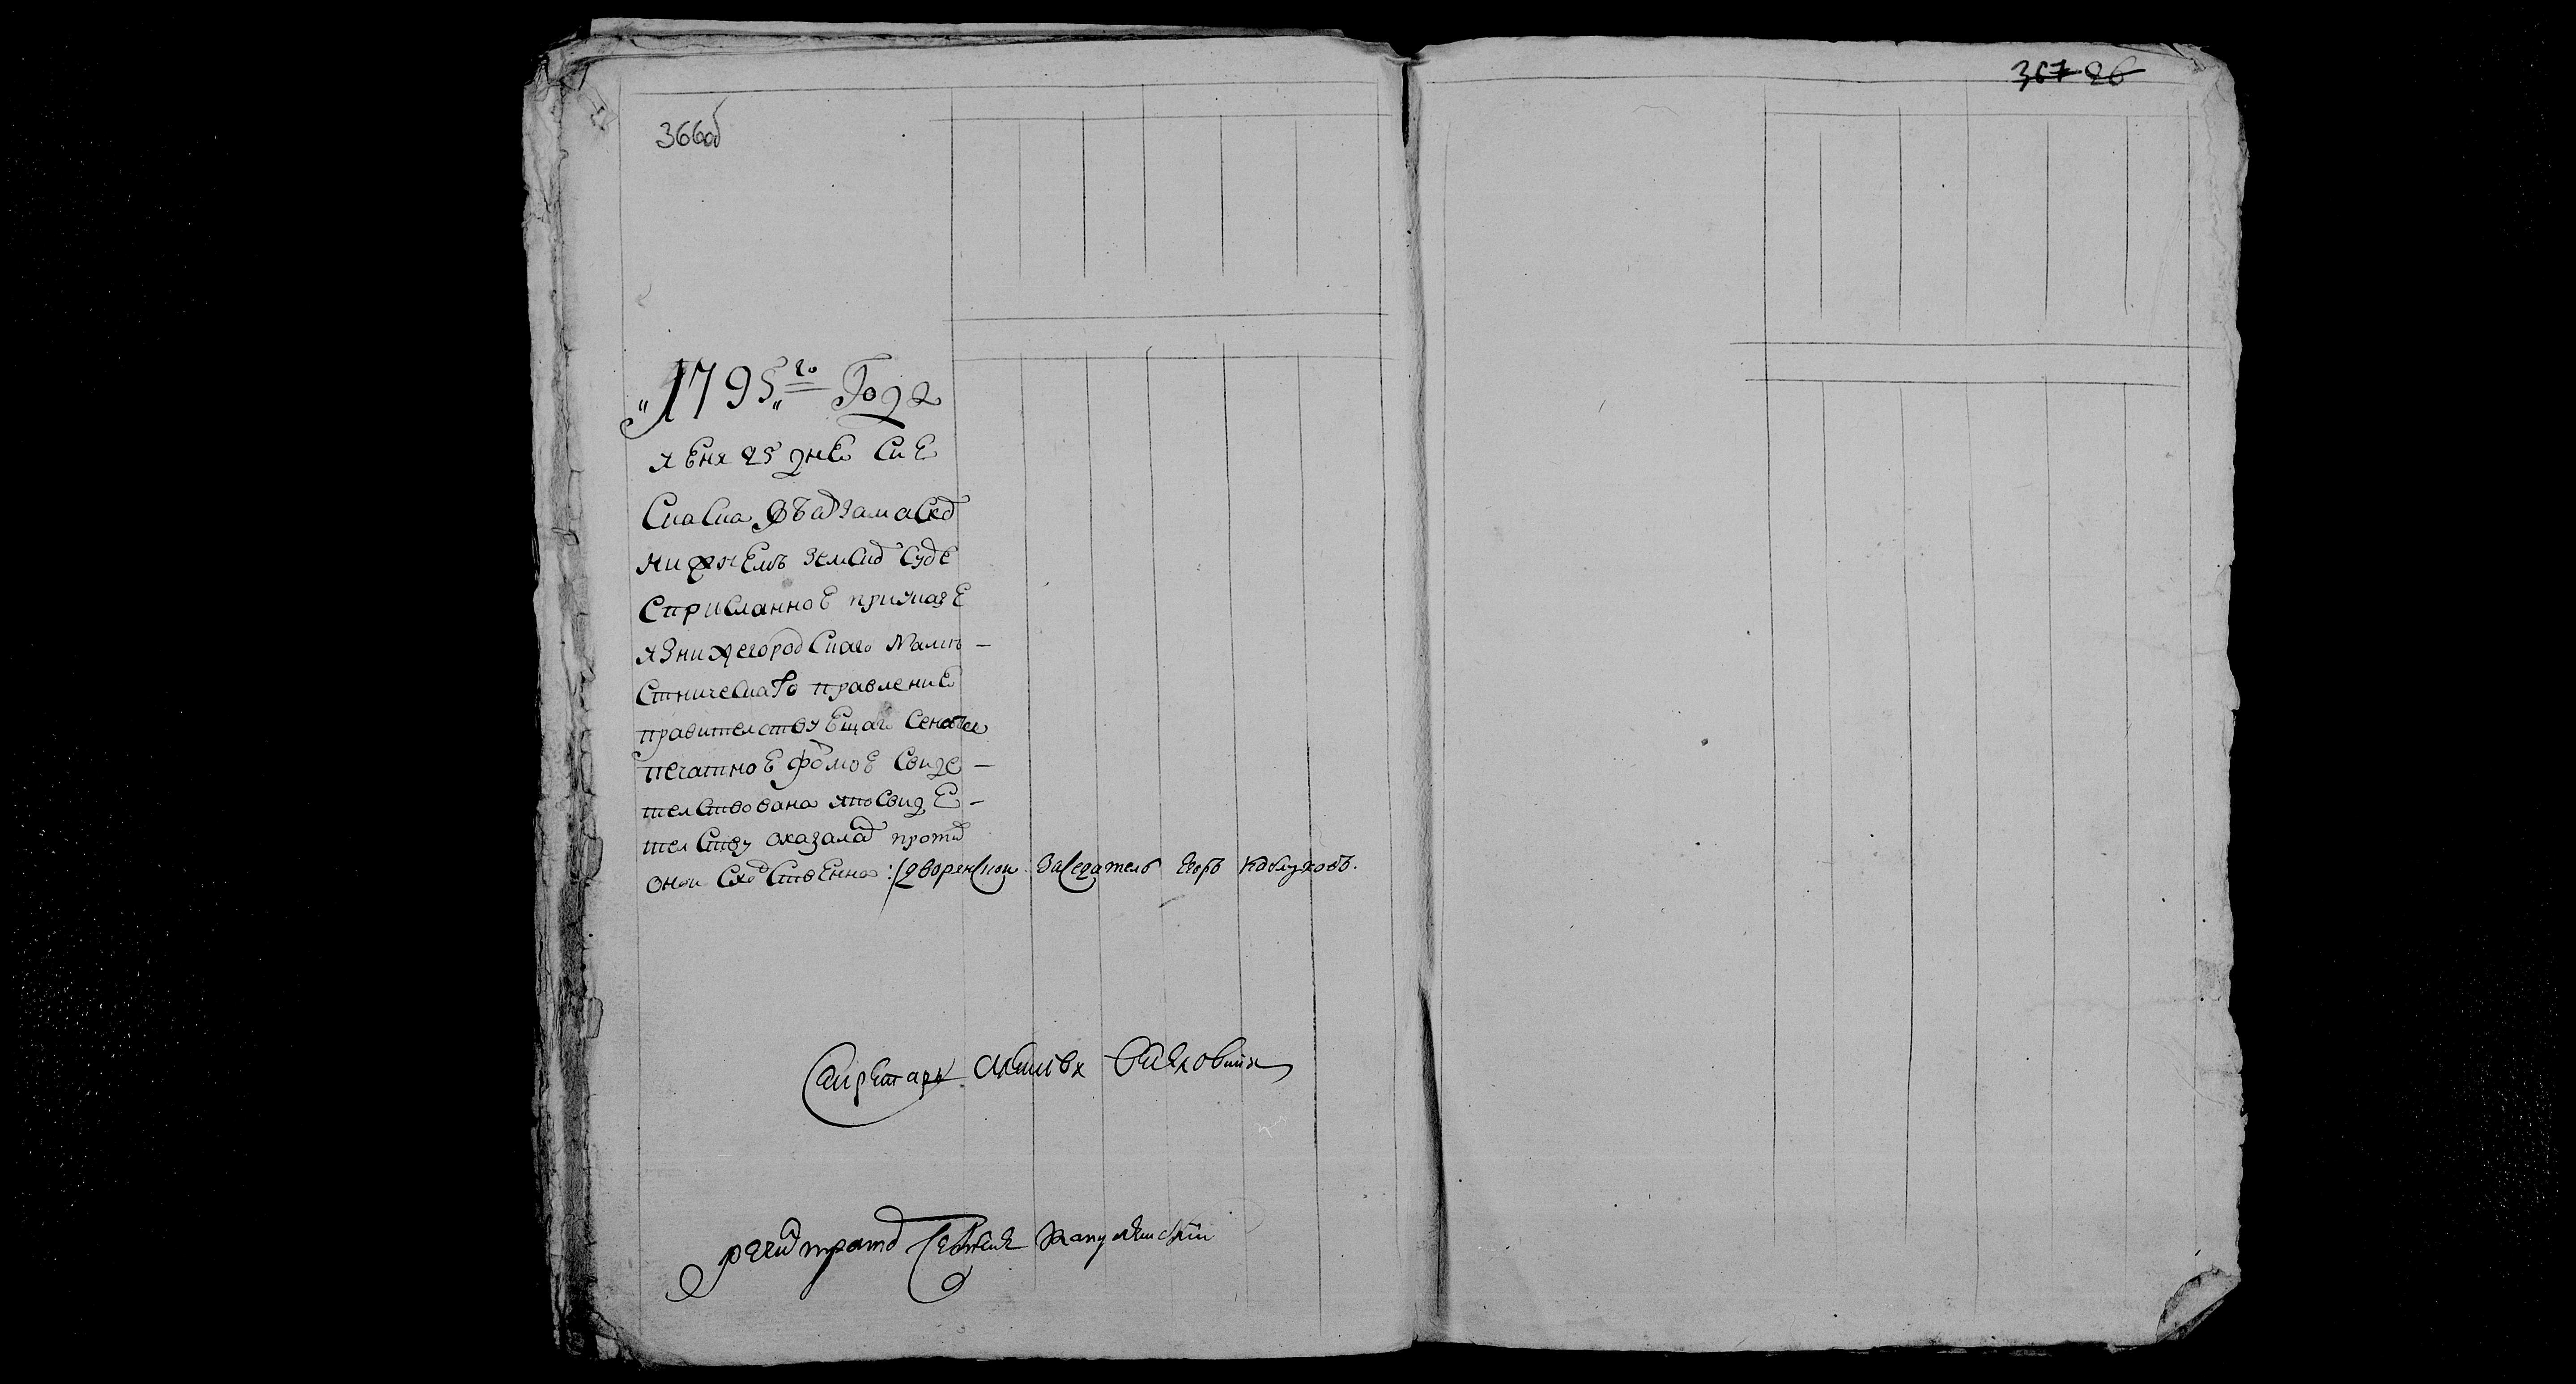 366об
367 26
„1795„го Года
июня 25 дня сие
сказка въ арзамаском
нижнемъ земском суде
с присланною при указе
из нижегородскаго намѣ-
стническаго правления
правителствующаго сената
печатною формою свиде-
телствована и по свиде-
телству оказалас против
оной сходственна: дворянской заседатель Егоръ Каблуковъ.
Секретарь
регистратор